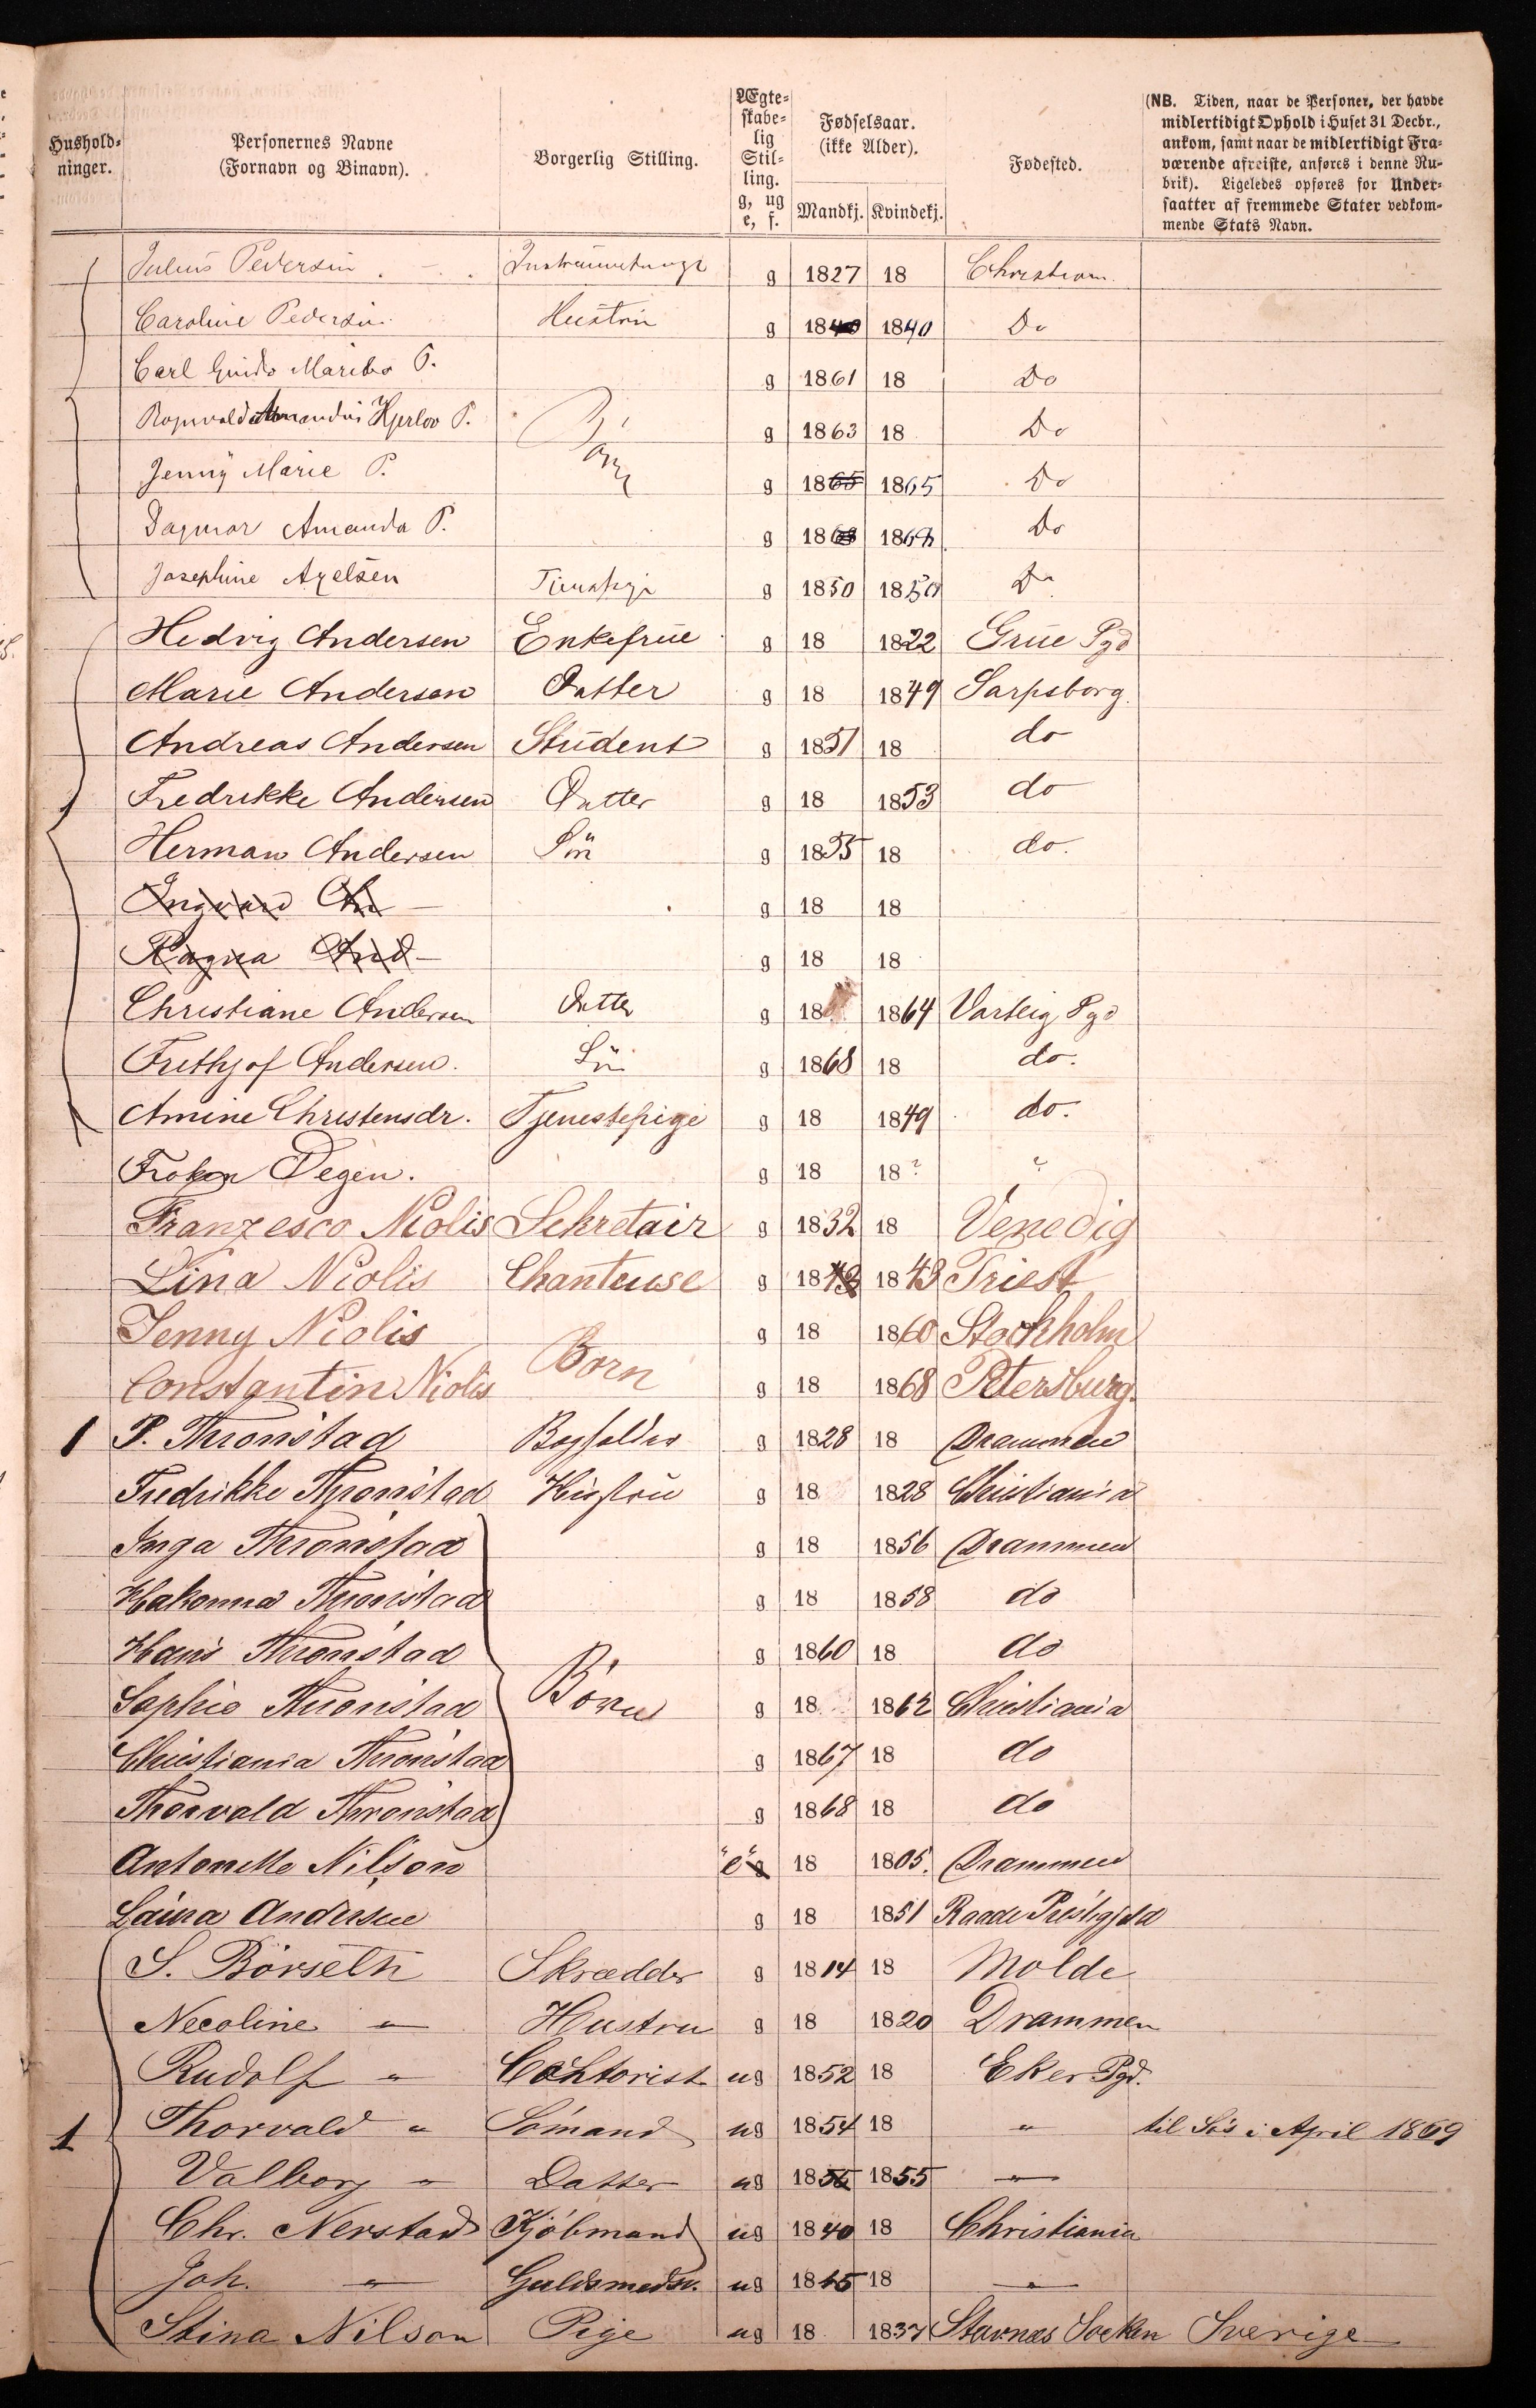 Hushold-
ninger.
Personernes Navne
(Fornavn og Binavn).
Borgerlig Stilling.
Ægte-
skabe-
lig
Stil-
ling.
g, ug
e, f.
Fødselsaar.
(ikke Alder).
Mandkj. Kvindekj.
Fødested.
(NB. Tiden, naar de Personer, der havde
midlertidigt Ophold i Huset 31 Decbr.,
ankom, samt naar de midlertidigt Fra-
værende afreiste, anføres i denne Ru-
brik). Ligeledes opføres for Under-
saatter af fremmede Stater vedkom-
mende Stats Navn.
Julius Pedersen g 1827 18 Christiania
Caroline Pedersen Hustru g 1840 1840 Do
Carl Guido P. g 1861 18 Do
Hjerlov P. g 1863 18 Do
Børn
Jenny Marie P. g 1865 1865 Do
Dagmar Amanda P. g 1868 1868 Do
Josephine Axelsen g 1850 1850 Do
Hedvig Andersen Enkefrue g 18 1822 Grue Pgd
Marie Andersen Datter g 18 1849 Sarpsborg
Andreas Andersen Student g 1851 18 do
Fredrikke Andersen Datter g 18 1853 do
Herman Andersen Sön g 1855 18 do.
Ingvard An g 18 18
Ragna And g 18 18
Christiane Andersen Datter g 18 1864 Varteig Pgd
Frethjof Andersen. Sön g 1868 18 do.
Amine Christensdr. Tjenestepige g 18 1849 do.
Frøken Degen. g 18 18? ?
Franzesco Niolis Sekretair g 1832 18 Venedig
Lina Niolis Chanteuse g 1843 1843 Triest
Jenny Niolis g 18 1860 Stockholm
Born
Constantin Niolis g 18 1868 Petersburg.
1 P. Thronstad Bogholder g 1828 18 Drammen
Fredrikke Thronstad Hustru g 18 1828 Christiania
Inga Thronstad g 18 1856 Drammen
Hakonna Thronstad g 18 1858 do
Hans Thronstad g 1860 18 do
Sophie Thronstad Børn g 18 1862 Christiania
Christiania Thronstad g 1867 18 do
Thorvald Thronstad g 1868 18 do
Antonette Nilson "e" g 18 1805. Drammen
Laura Andersen g 18 1851 Raade Præstegjeld
S. Börseth Skrædder g 1814 18 Molde
Necoline " Hustru g 18 1820 Drammen
Rudolf " Contorist ug 1852 18 Eker Pgd.
1 Thorvald " Sömand ug 1854 18 " til Søs i April 1869
Valborg " Datter ug 1855 1855 "
Chr. Nerstad Kjöbmand ug 1840 18 Christiania
Joh. " Guldsmedsv. ug 1845 18 "
Stina Nilson Pige ug 18 1837 Stavnæs Socken Sverige